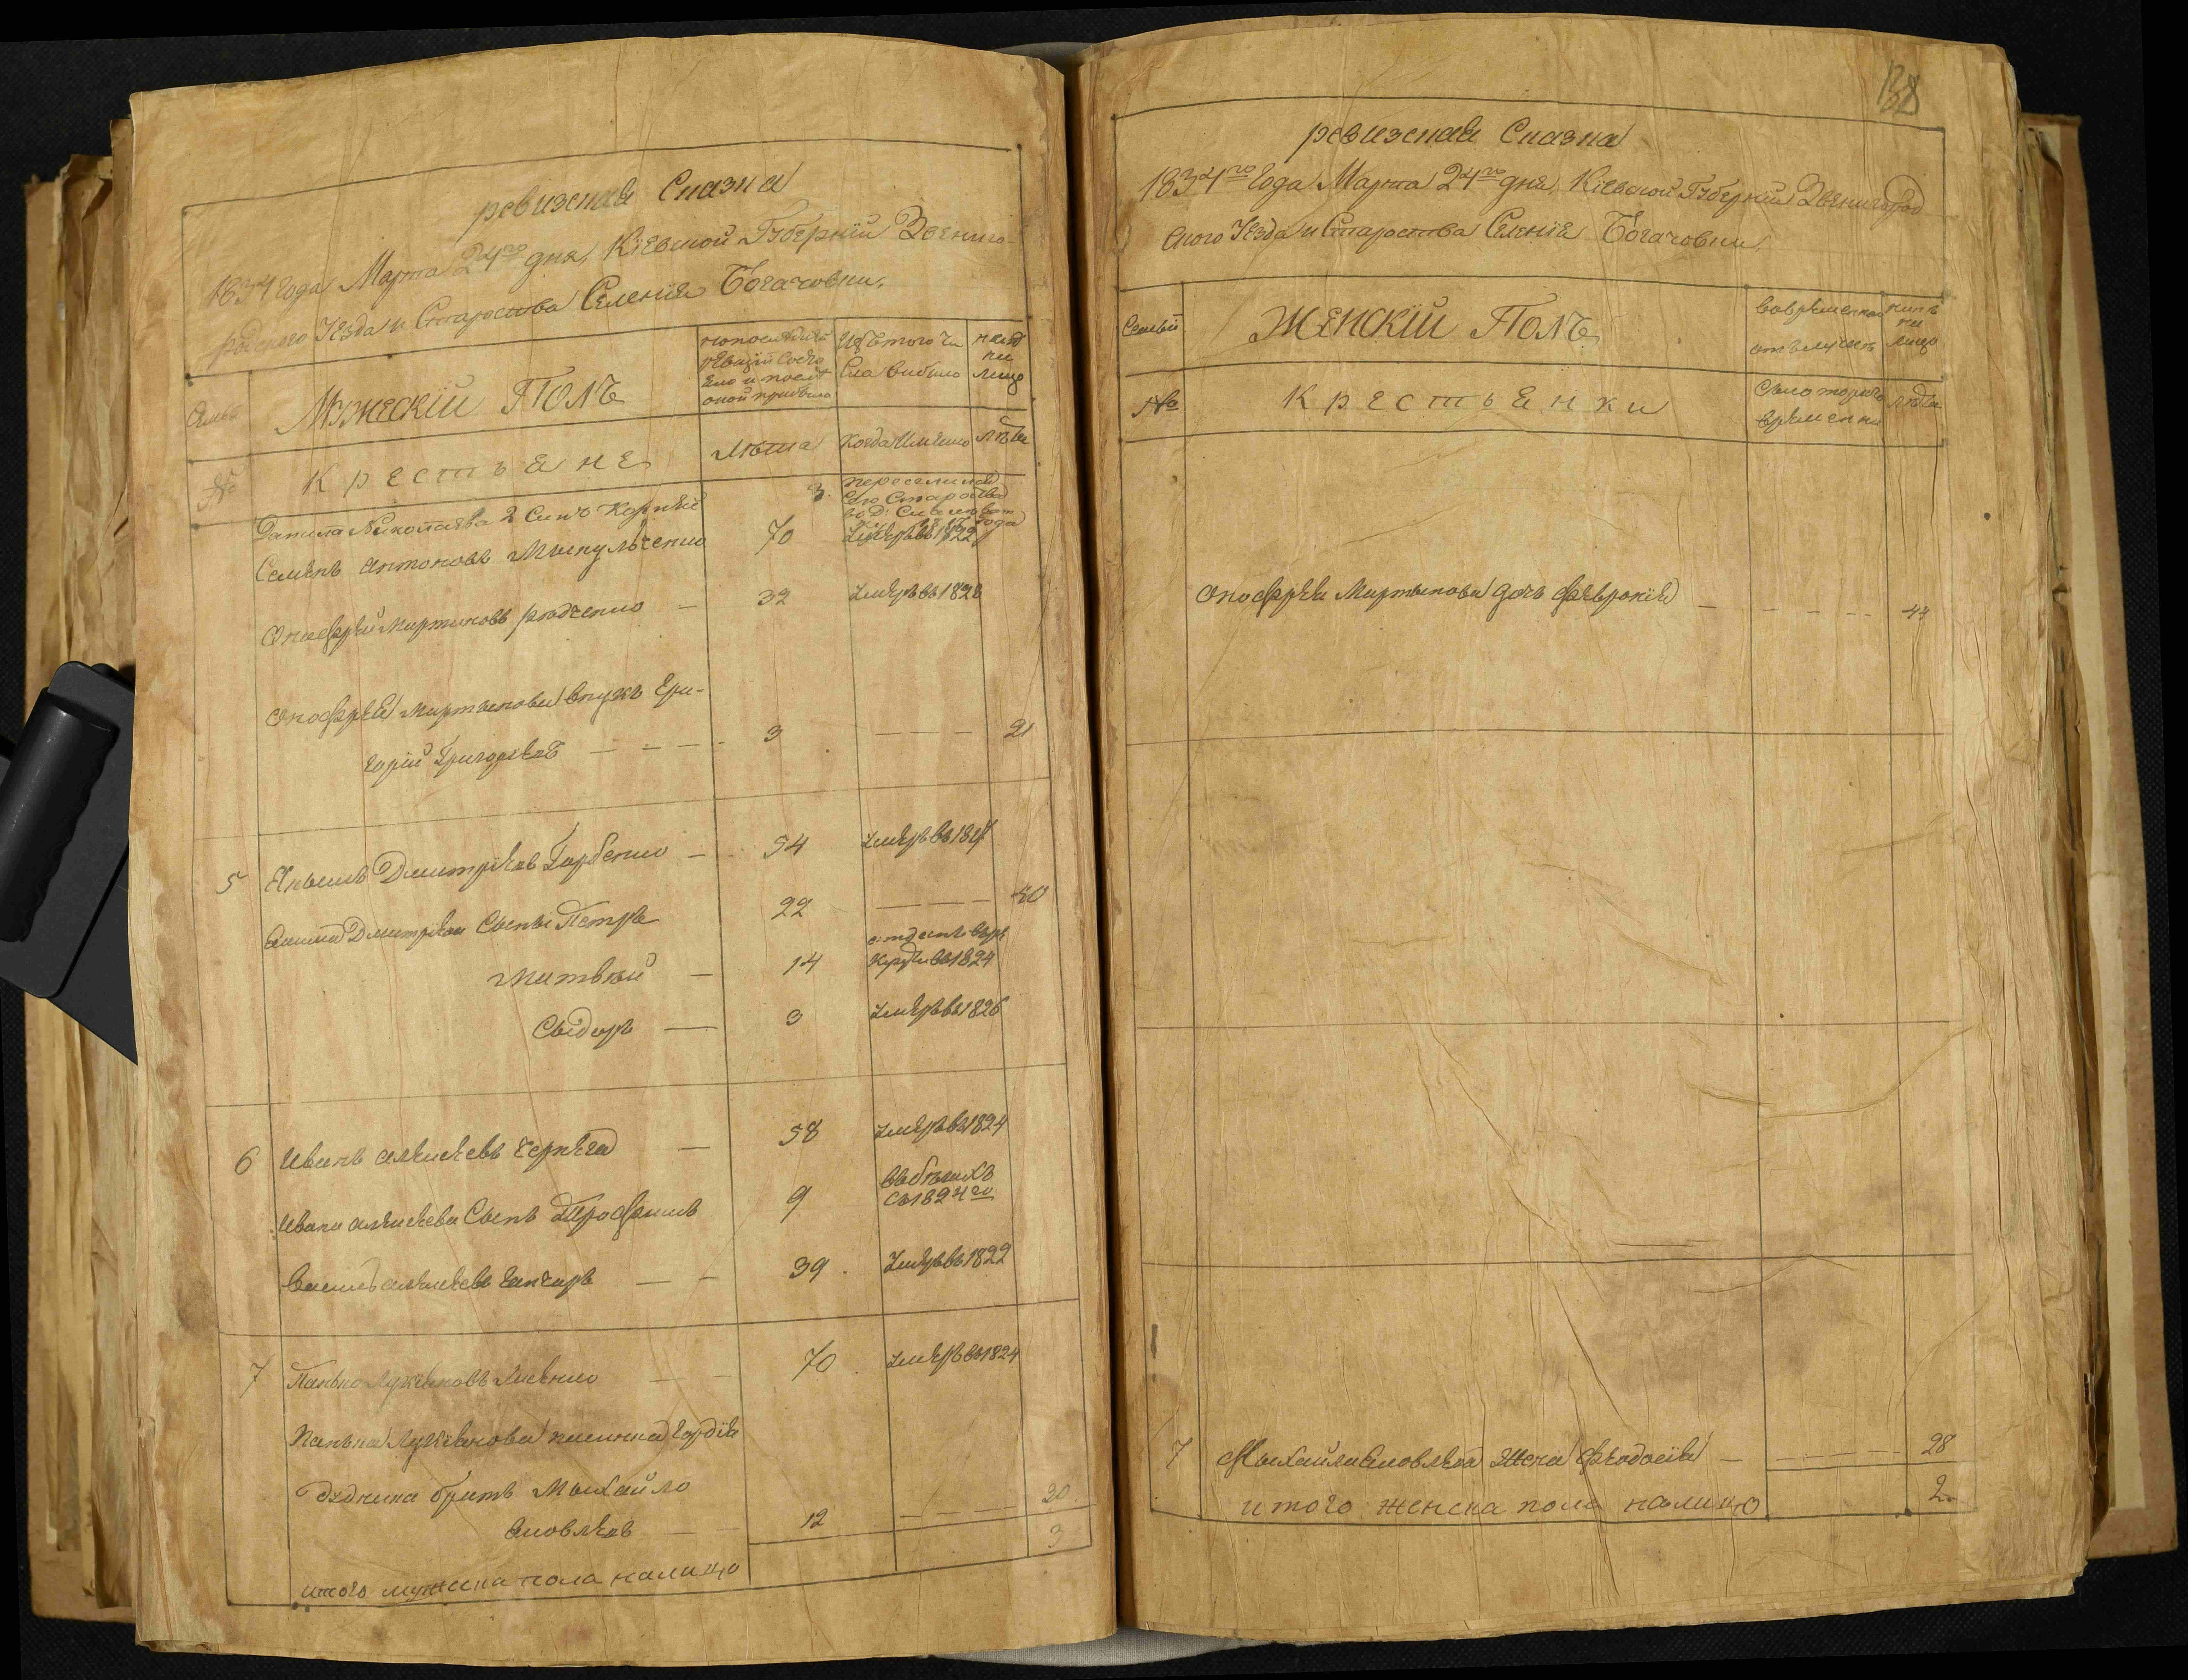 ревизская Сказка
1834 года Марта 24го дня, Кіевской Губерніи Звениго-
родского Уезда и Староства Селенія Богачовки,
Семьи
Мужескій Полъ
по последней
ревизіи состо
яло и после
оной прибыло
Изъ того чи
сла выбыло
ныне
на
лицо
№
Крестьяне
Лѣта
Когда имянно
лѣта
Данила Николаева 2 Сынъ Корней
3.
переселился
Сего Староства
в Д:
года
Семенъ Антоновъ Микульченко
70
Умеръ въ 1822
Онофрей Мартиновъ
32
Умеръ въ 1828
Онофрея Мартынова внукъ Гри-
горій Григорьевъ
3
21
5
Якымъ Дмитріевъ Горбенко
54
Умеръ въ 1824
Якима Дмитріева Сыны Петръ
22
40
Матвѣй
14
отданъ въ ре
круты въ 1824
Сыдоръ
3
Умеръ въ 1826
6
Иванъ Алексеевъ Чернега
58
Умеръ въ 1824
Ивана Алексеева Сынъ Трофимъ
9
въ бѣгахъ
съ 1824го
Василь Алексеевъ Ганчаръ
39.
Умеръ въ 1822
7
Панько Лукьяновъ
70.
Умеръ въ 1824
Панька Лукьянова племянника Гордія
Дудника братъ Мыхайло
Яковлевъ
12
20
итого мужеска пола налицо
3
138
ревизская Сказка
1834го Года Марта 24го дня, Кіевской Губерніи Звенигород
ского Уезда и Староства Селенія Богачовки,
Семьи
Женскій Полъ
во временной
отлучке
ныне
на
лицо
№
Крестьянки
Съ которого
времени
лѣта
Онофрея Мартынова дочь Февронія
44
7
Мыхайла Яковлева жена Феодосія
28
итого женска пола налицо
2